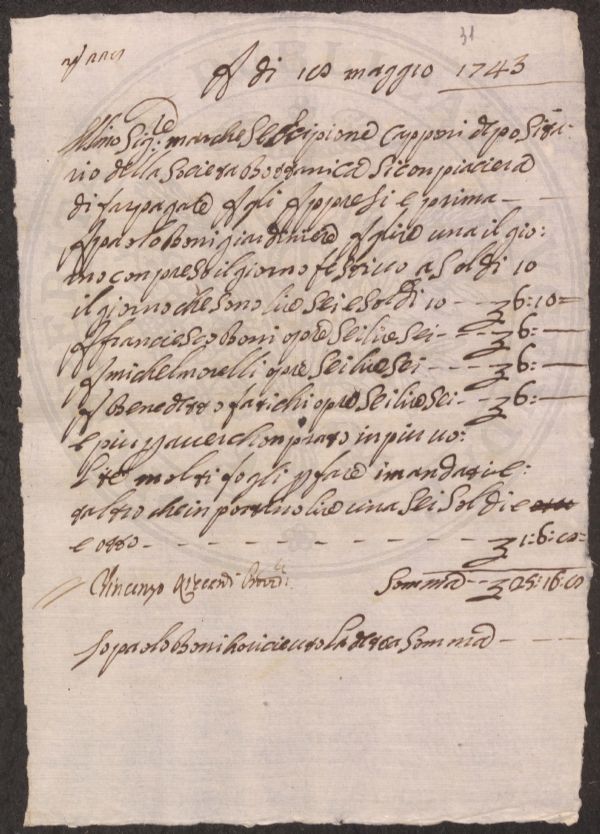 31
A di 18 maggio 1743
Illmo Sig.re marchese Scipione Capponi depossita:
rio della Societa Bottanica Si conpiacierà
di far pagare A gli Appresi e prima
A paolo Boni giardiniere A lire una il gio:
rno conpreso il giorno festiuo a Soldi 10
il giorno che sono lire Sei e Soldi 10 — 6: 10 =
A franciesco Boni opre Sei lire Sei — 6: —
A michel morelli opre Sei lire Sei — 6: —
A Benedetto farichi opre Sei lire Sei — 6: —
e piu p auer chonprato in piu uo:
lte molti fogli p fare i mandati e
taltro che inportano lire una Sei Soldi e
e otto — 1: 6: 8 =
Vincenzo Somma — 25: 16: 8
Io paolo Boni ho riceuto la detta Somma —